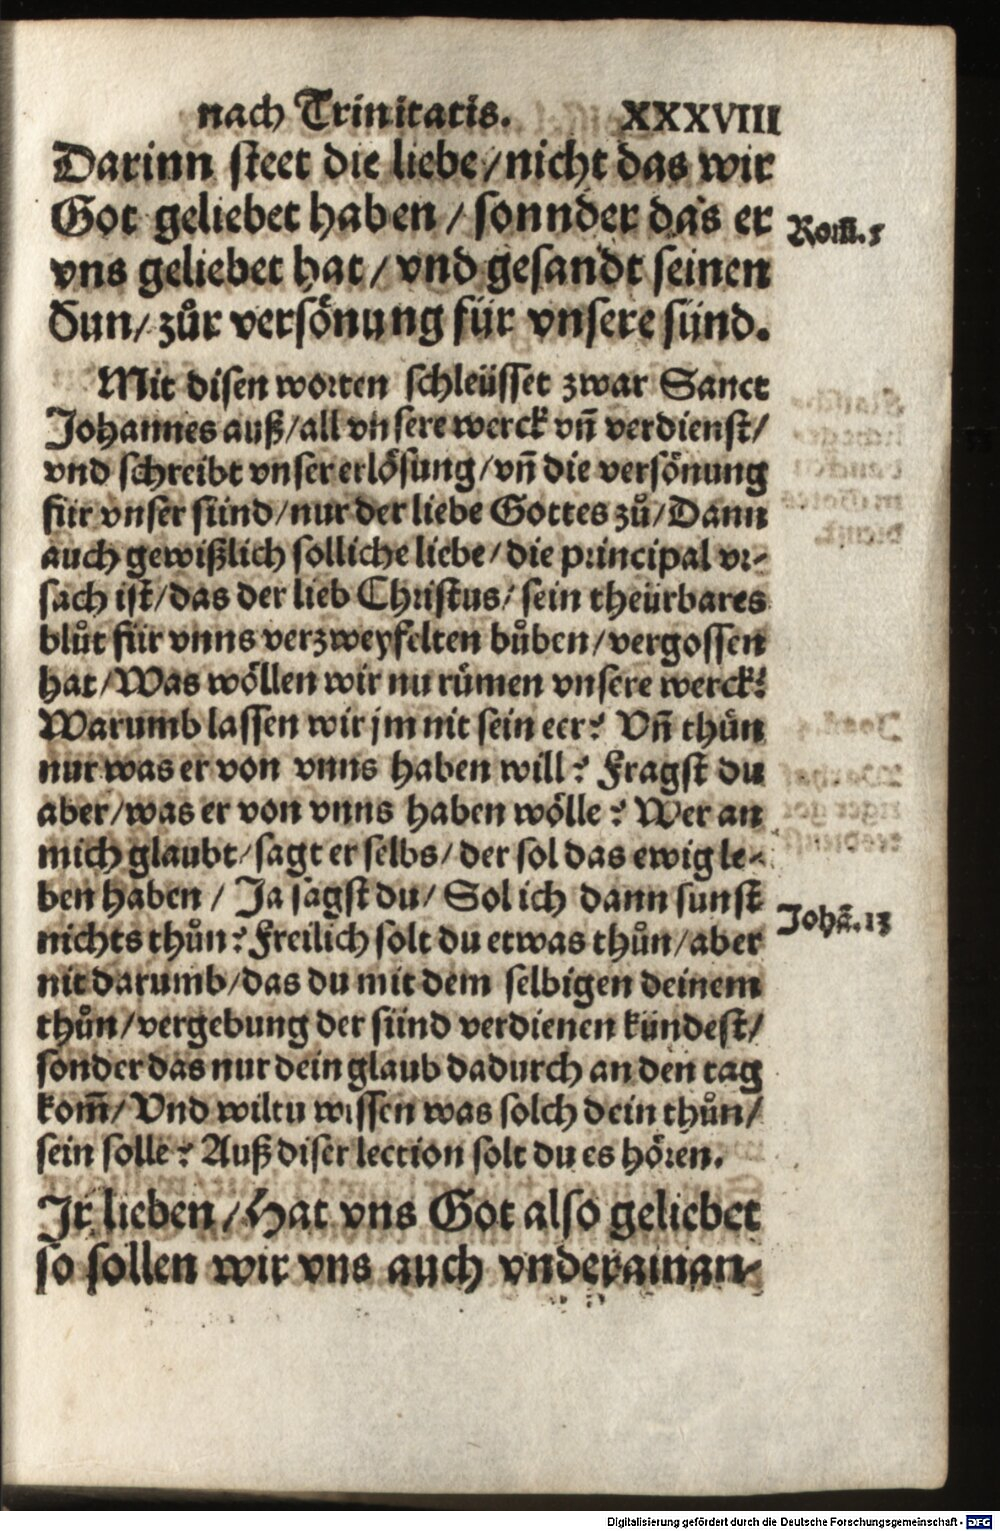 nach Trinitatis. XXXVIII
Darinn steet die liebe/nicht das wir
Got geliebet haben / sonnder das er
Rom̃. 5
vns geliebet hat/ vnd gesandt seinen
Sun/ zůr versönung für vnsere sünd.
Mit disen worten schleüsset zwar Sanct
Johannes auß/all vnsere werck vñ verdienst/
vnd schreibt vnser erlösung/vñ die versönung
für vnser sünd/nur der liebe Gottes zů/Dann
auch gewißlich solliche liebe/die principal vr-
sach ist/das der lieb Christus/ sein theürbares
blůt für vnns verzweyfelten bůben/vergossen
hat/Was wöllen wir nu rümen vnsere werck?
Warumb lassen wir jm nit sein eer? Vñ thůn
nur was er von vnns haben will? Fragst du
aber/was er von vnns haben wölle? Wer an
mich glaubt/sagt er selbs/der sol das ewig le-
ben haben / Ja sagst du/ Sol ich dann sunst
Johã. 13
nichts thůn? Freilich solt du etwas thůn/aber
nit darumb/das du mit dem selbigen deinem
thůn/vergebung der sünd verdienen kündest/
sonder das nur dein glaub dadurch an den tag
kom̃/ Vnd wiltu wissen was solch dein thůn/
sein solle? Auß diser lection solt du es hören.
Ir lieben/Hat vns Got also geliebet
so sollen wir vns auch vnderainan-
Digitalisierung gefördert durch die Deutsche Forschungsgemeinschaft - DFG